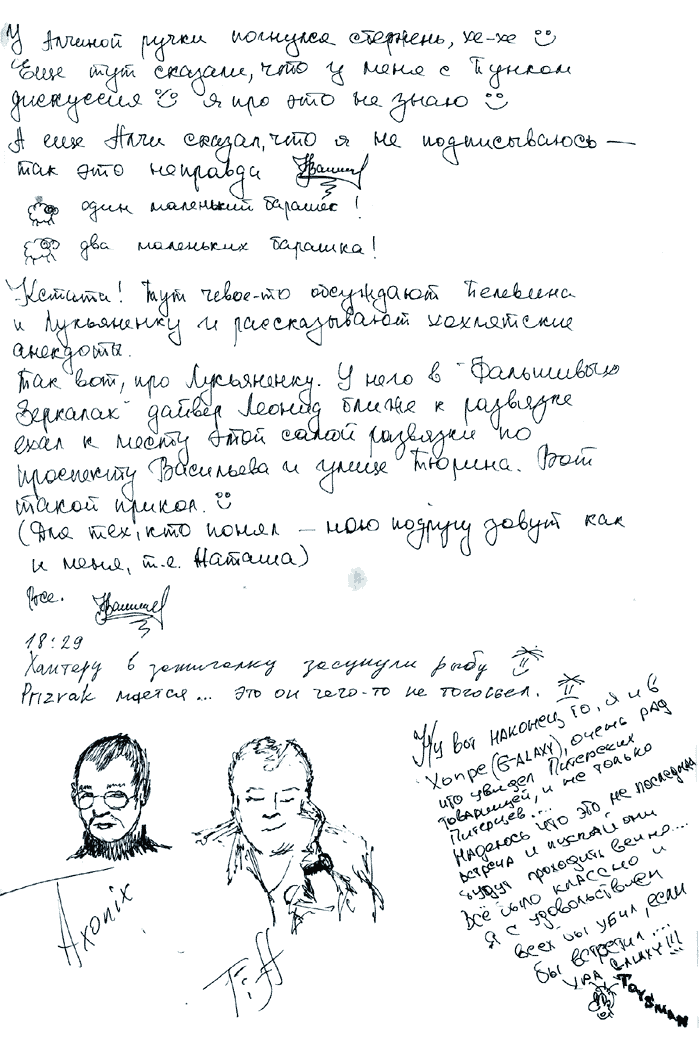 У Алчиной ручки погнулся стержень, хе-хе
Еще тут сказали, что у меня с Пунком
дискуссия я про это не знаю
А еще Алчи сказал, что я не подписываюсь —
так это неправда
один маленький барашек!
два маленьких барашка!
Кстати! Тут чевое-то обсуждают Пелевина
и Лукьяненку и рассказывают хохлятские
анекдоты.
Так вот, про Лукьяненку. У него в "Фальшивых
Зеркалах" дайвер Леонид ближе к развязке
ехал к месту этой самой развязки по
проспекту Васильева и улице Тюрина. Вот
такой прикол.
(Для тех, кто понял — мою подругу зовут как
и меня, т.е. Наташа)
Все.
18:29
Хантеру в зажигалку засунули рыбу
Prizrak мается... это он чего-то не того съел.
Ну вот наконец то, я и в
Хопре (G-ALAXY), очень рад
что увидел Питерских
товарищей, и не только
Питерцев....
Надеюсь что это не последняя
встреча и пускай они
будут проходить вечно...
Всё было классно и
я с удовольствием
всех бы убил, если
бы встретил...
УРА GALAXY!!!
TOYSMAN
Axonix
Tiff